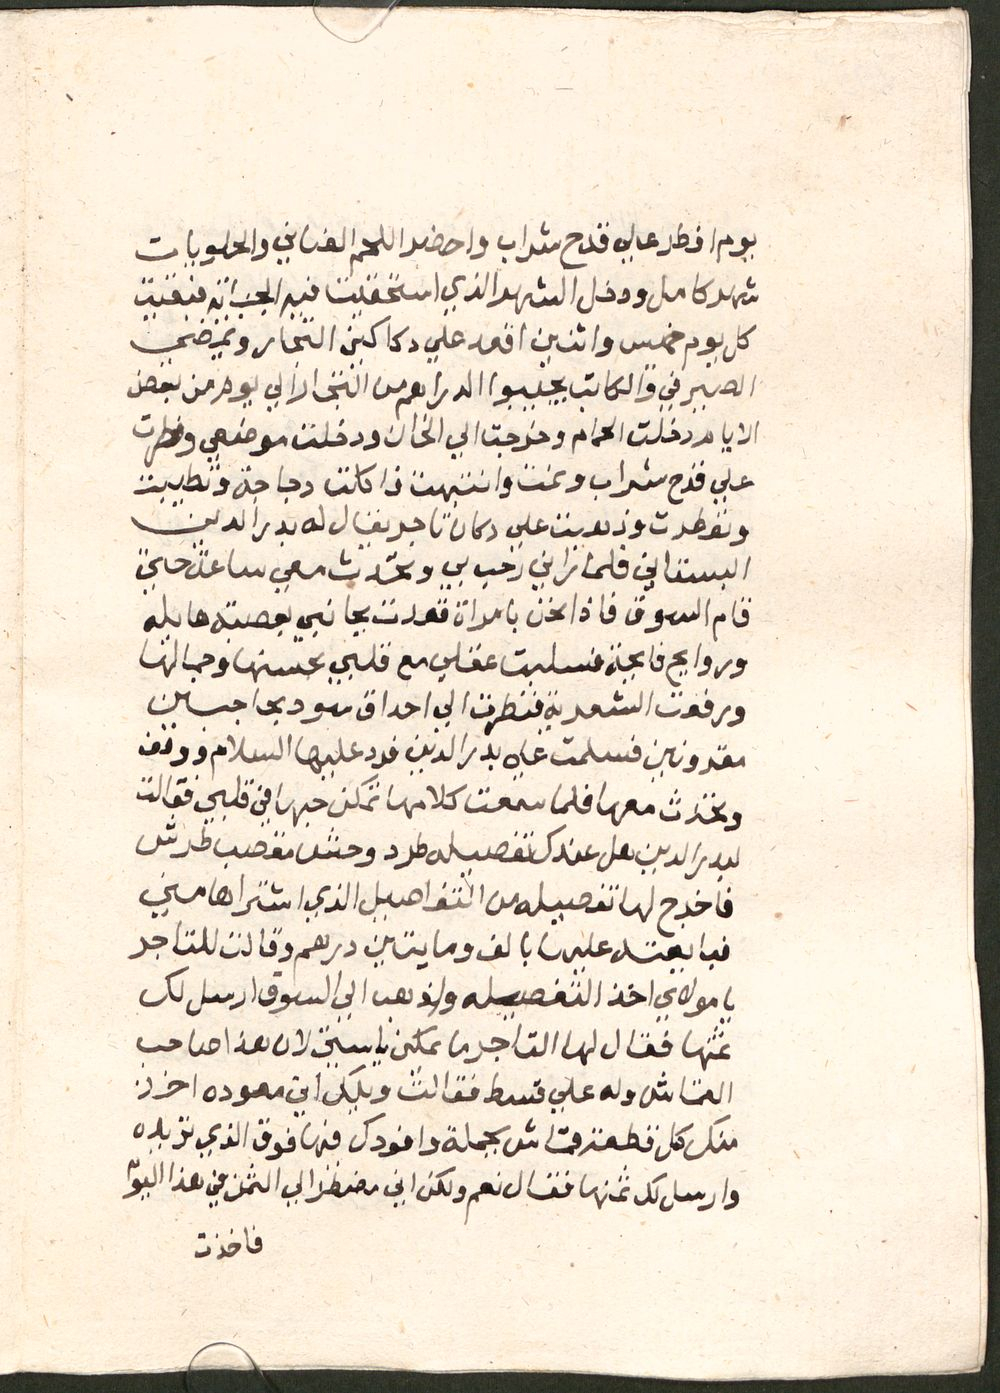 يوم افطر على قدح شراب واحضر اللحم الضاني والحلويات
شهر كامل ودخل الشهر الذي استحقيت فيه الجبايه فبقيت
كل يوم خميس واثنين اقعد على دكاكين التجار ويمضى
الصيرفي والكاتب يجيبوا الدراهم من التجار الي يوم من بعض
الايام دخلت الحمام وخرجت الي الخان ودخلت موضعي وفطرت
علي قدح شراب ونمت وانتبهت فاكلت دجاجة وتطيبت
وتعطرت وذهبت علي دكان تاجر يقال له بدر الدين
البستاني فلما راني رحب بي وتحدث معي ساعة حتي
قام السوق فاذا نحن بامراة قعدت بجانبي بعصبه هايله
وروايح فايحة فسلبت عقلي مع قلبي بحسنها وجمالها
ورفعت الشعرية فنظرت الي احداق سود بحاجبين
مقرونين فسلمت علي بدر الدين فرد عليها السلام ووقف
وتحدث معها فلما سمعت كلامها تمكن حبها في قلبي فقالت
لبدر الدين هل عندك تفصيله طرد وحش مقصب طرش
فاخرج لها تفصيله من التفاصيل الذي اشتراها مني
فبايعته عليها بالف ومايتين درهم وقالت للتاجر
يا مولاي اخذ التفصيله واذهب الي السوق ارسل لك
ثمنها فقال لها التاجر ما يمكن ياستي لان هذا صاحب
القماش وله علي قسط فقالت ويلك اني معوده اخذ
منك كل قطعة قماش بجملة وافودك فيها فوق الذي تريده
وارسل لك ثمنها فقال نعم ولكن اني مضطر الي الثمن في هذا اليوم
فاخذت